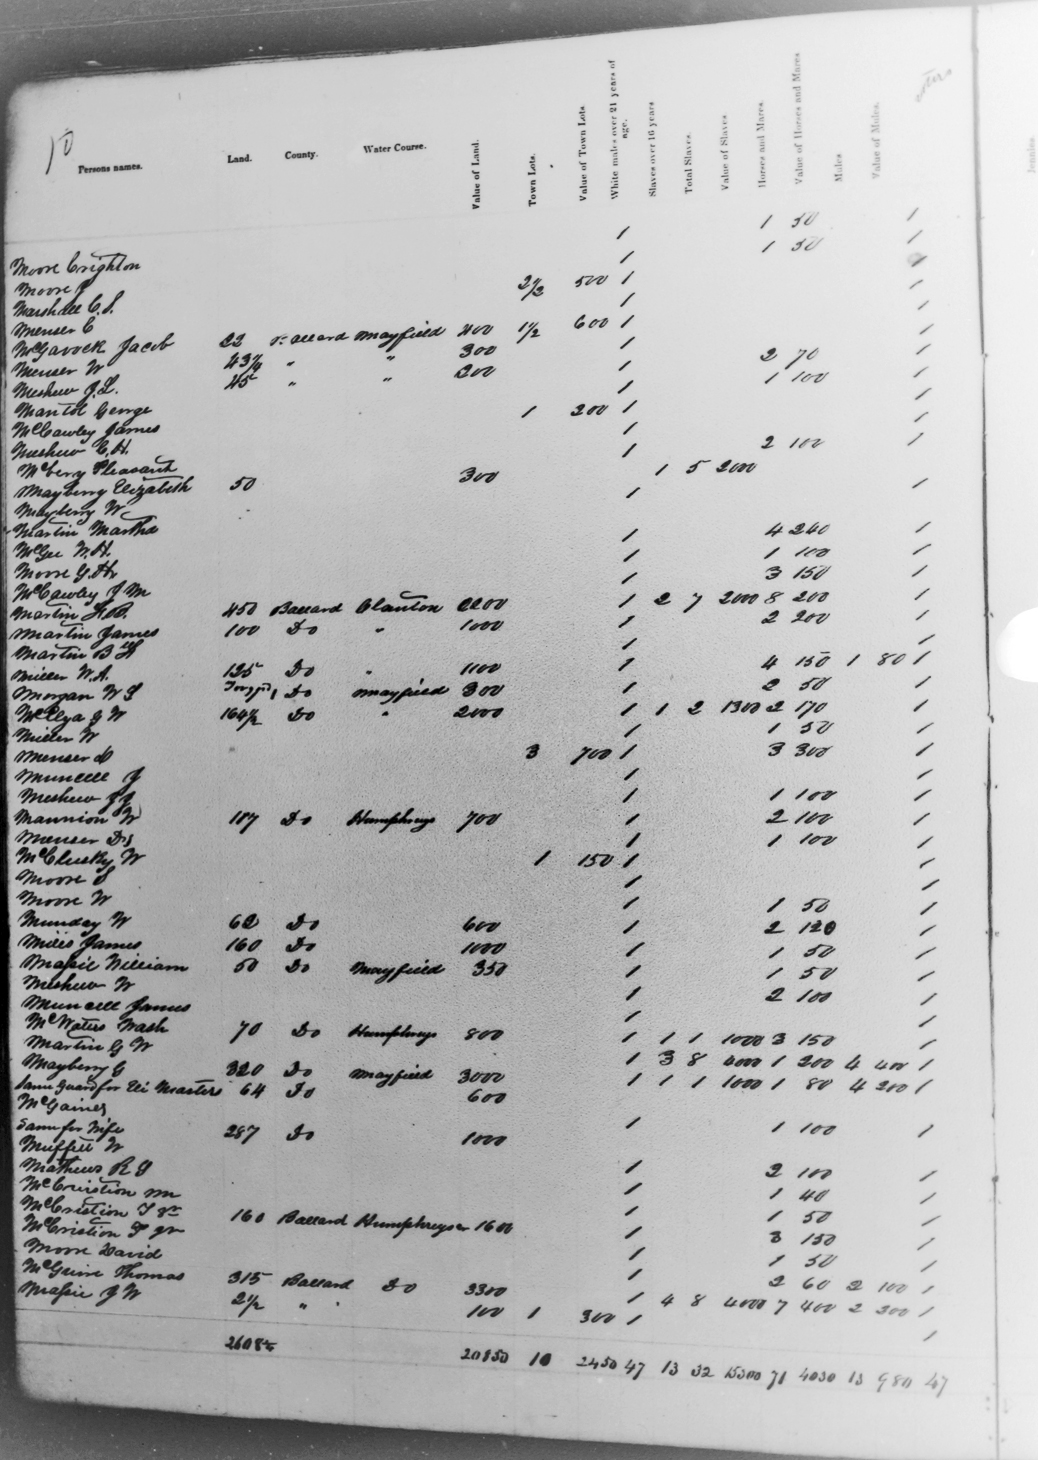 10
Persons names. Land. County. Water Course. Value of Land. Town Lots. Value of Town Lots White males over 21 years of age. Slaves over 16 years Total Slaves. Value of Slaves Horses and Mares. Value of Horses and Mares Mules Value of Mules. voters
Jennies
Moore Crighton 1 1 50 1
Moore J 1 1 50 1
Marshall C. S. 2 1/2 500 1
Menser C 1 1
McGavock Jacob 22 Ballard Mayfield 400 1 1/2 600 1 1
Menser W 43 3/4 " " 300 1 2 70 1
Meshew J. L. 45 " " 200 1 1 100 1
Mantle George 1 200 1 1
McCawley James 1 1
Meshew E. H. 1 2 100 1
McBerry Pleasant
Mayberry Elizabeth 50 300 1 5 2000
Mayberry W. 1 1
Martin Martha
McGee W. H. 1 4 240 1
Moore G. H. 1 1 100 1
McCawley J M 1 3 150 1
Martin H. B. 450 Ballard Clanton 2200 1 2 7 2000 8 200 1
Martin James 100 Do " 1000 1 2 200 1
Martin B H 1 1
Miller W. A. 125 Do " 1100 1 4 150 1 80 1
Morgan W S Do Mayfield 300 1 2 50 1
McElya J W 164 1/2 Do " 2000 1 1 2 1300 2 170 1
Miller W 1 1 50 1
Menser D 3 700 1 3 300 1
Muncell J 1 1
Meshew J J 1 1 100 1
Mannion W 187 Do Humphreys 700 1 2 100 1
Menser D 1 1 100 1
McClusky W 1 150 1 1
Moore S 1 1
Moore W 1 1 50 1
Munday W 62 Do 600 1 2 120 1
Mills James 160 Do 1000 1 1 50 1
Massie William 50 Do Mayfield 350 1 1 50 1
Meshew W 1 2 100 1
Muncell James 1 1
McWaters Wash 70 Do Humphreys 800 1 1 1 1000 3 150 1
Martin G W 1 3 8 4000 1 200 4 400 1
Mayberry G 320 Do Mayfield 3000 1 1 1 1000 1 80 4 200 1
Same Guard for Eli Masters 64 Do 600
McGaines 1 1 100 1
Same for Wife 287 Do 1000
Muffett W 1 2 100 1
Mathews R G 1 1 40 1
McCristion Wm 1 1 50 1
McCristion T Sr 160 Ballard Humphreys 1600 1 3 150 1
McCristion T Jr 1 1 50 1
Moore David 1 2 60 2 100 1
McGuire Thomas 315 Ballard Do 3300 1 4 8 4000 7 400 2 200 1
Massie J W 2 1/2 " " 100 1 300 1 1
20850 10 2450 47 13 32 15300 71 4030 13 980 47